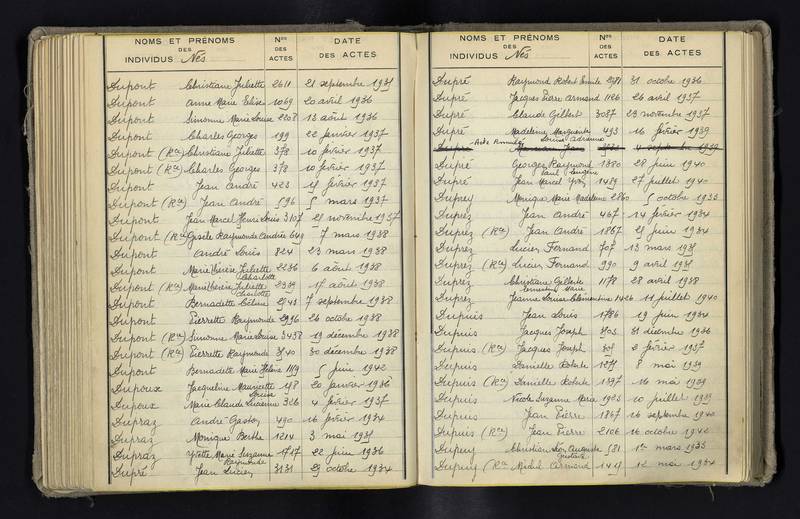 NOMS ET PRÉNOMS DES INDIVIDUS Nés
Nos DES ACTES
DATE DES ACTES
Dupont Christiane Juliette 2611 21 septembre 1935
Dupont Anne Marie Elise 1069 20 avril 1936
Dupont Simonne Marie Louise 2208 13 août 1936
Dupont Charles Georges 199 22 janvier 1937
Dupont (Rce) Christiane Juliette 378 10 février 1937
Dupont (Rce) Charles Georges 378 10 février 1937
Dupont Jean André 423 15 février 1937
Dupont (Rce) Jean André 596 5 mars 1937
Dupont Jean Marcel Henri Louis 3107 21 novembre 1937
Dupont (Rce) Gisèle Raymonde Andrée 649 7 mars 1938
Dupont André Louis 824 23 mars 1938
Dupont Marie Thérèse Juliette Charlotte 2236 6 août 1938
Dupont (Rce) Marie Thérèse Juliette Charlotte 2339 17 août 1938
Dupont Bernadette Céline 2543 7 septembre 1938
Dupont Pierrette Raymonde 2996 26 octobre 1938
Dupont (Rce) Simonne Marie Louise 3458 19 décembre 1938
Dupont (Rce) Pierrette Raymonde 3540 30 décembre 1938
Dupont Bernadette Marie Hélène 1119 5 juin 1942
Dupoux Jacqueline Mauricette Louise 198 20 janvier 1936
Dupoux Marie Claude Lucienne 326 4 février 1937
Dupraz André Gaston 490 16 février 1934
Dupraz Monique Berthe 1214 3 mai 1935
Dupraz Yvette Marie Suzanne Raymonde 1717 22 juin 1936
Dupré Jean Lucien 3131 29 octobre 1934
NOMS ET PRÉNOMS DES INDIVIDUS Nés
Nos DES ACTES
DATE DES ACTES
Dupré Raymond Robert Emile 2981 31 octobre 1936
Dupré Jacques Pierre Armand 1126 26 avril 1937
Dupré Claude Gilbert 3087 23 novembre 1937
Dupré Madeleine Marguerite Louise Adrienne 493 16 février 1939
Dupré Acte Annulé 4 septembre 1939
Dupré Georges Raymond 1380 28 juin 1940
Dupré Jean Marcel Yvon Paul Eugène 1489 27 juillet 1940
Dupuy Monique Marie Madeleine 2860 5 octobre 1933
Duprez Jean André 467 14 février 1934
Duprez (Rce) Jean André 1867 25 juin 1934
Duprez Lucien Fernand 707 13 mars 1935
Duprez (Rce) Lucien Fernand 990 9 avril 1935
Duprez Christiane Gilberte 1178 28 avril 1938
Duprez Jeanne Louise Clémentine 1426 11 juillet 1940
Dupuis Jean Louis 1786 19 juin 1934
Dupuis Jacques Joseph 3503 31 décembre 1936
Dupuis (Rce) Jacques Joseph 305 2 février 1937
Dupuis Danielle Roberte 1271 8 mai 1939
Dupuis (Rce) Danielle Roberte 1397 16 mai 1939
Dupuis Nicole Suzanne Marie 1903 10 juillet 1939
Dupuis Jean Pierre 1867 16 septembre 1940
Dupuis (Rce) Jean Pierre 2106 16 octobre 1942
Dupuy Christian Léon Auguste Gustave 581 1er mars 1933
Dupuy (Rce) Michel Armand 1419 12 mai 1934